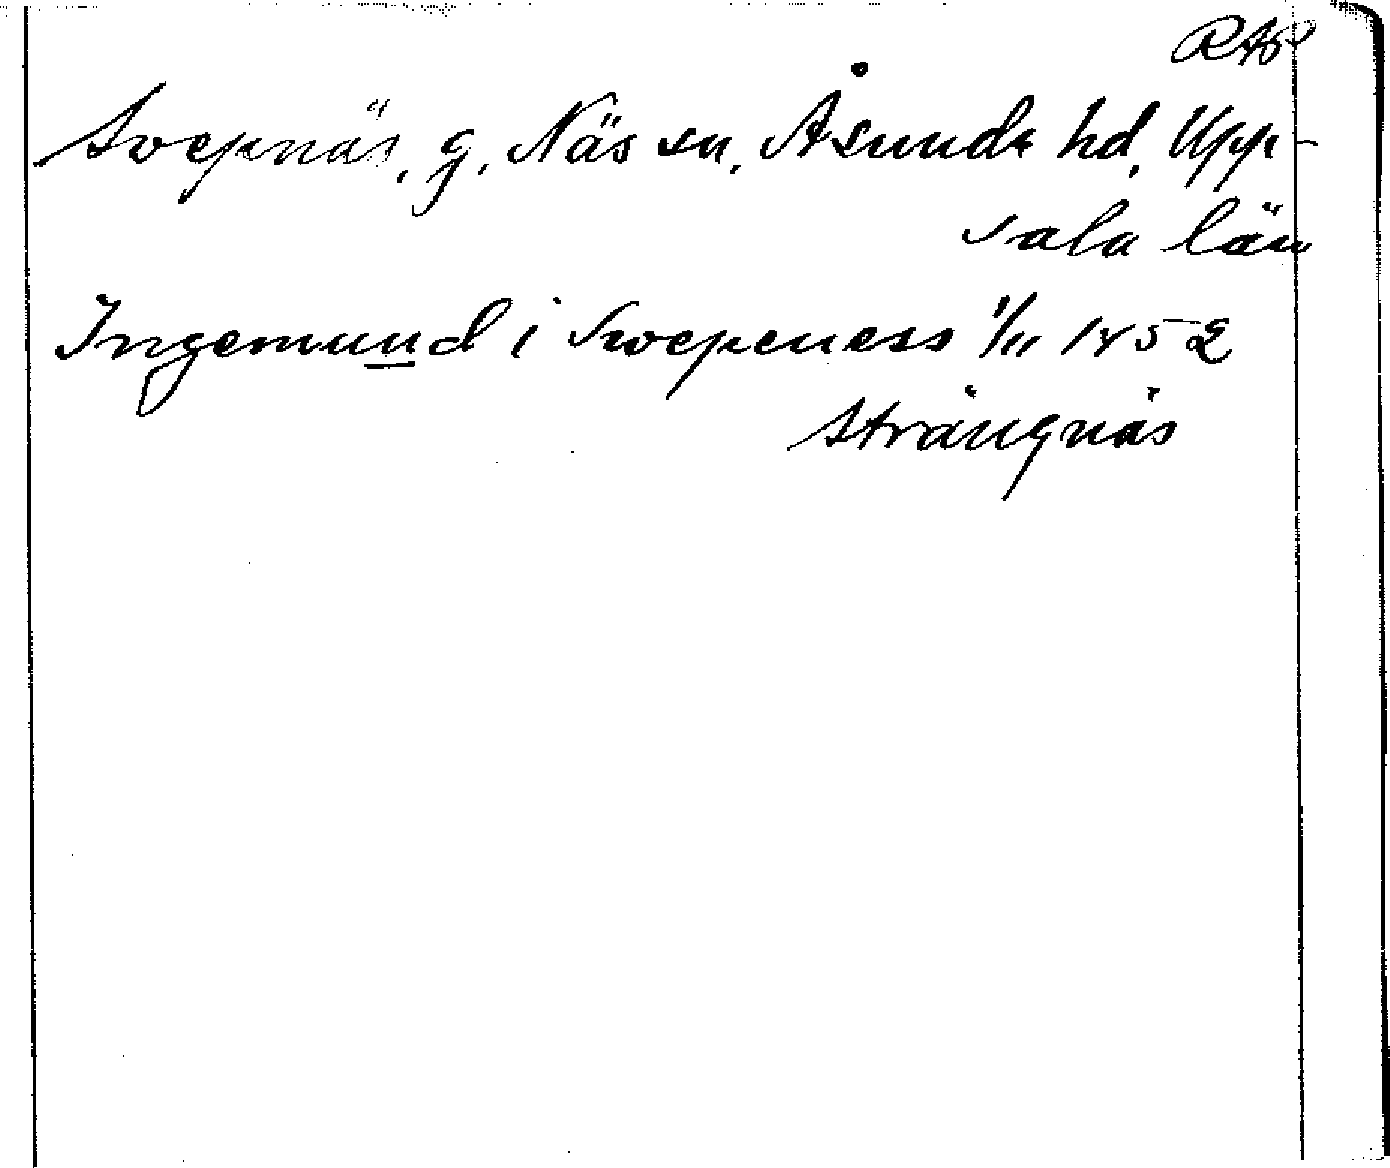 RAP
Svepnäs, g, Näs sn, Åsunda hd, Upp-
sala län
Ingemund i Swepeness 1/11 1452
Strängnäs